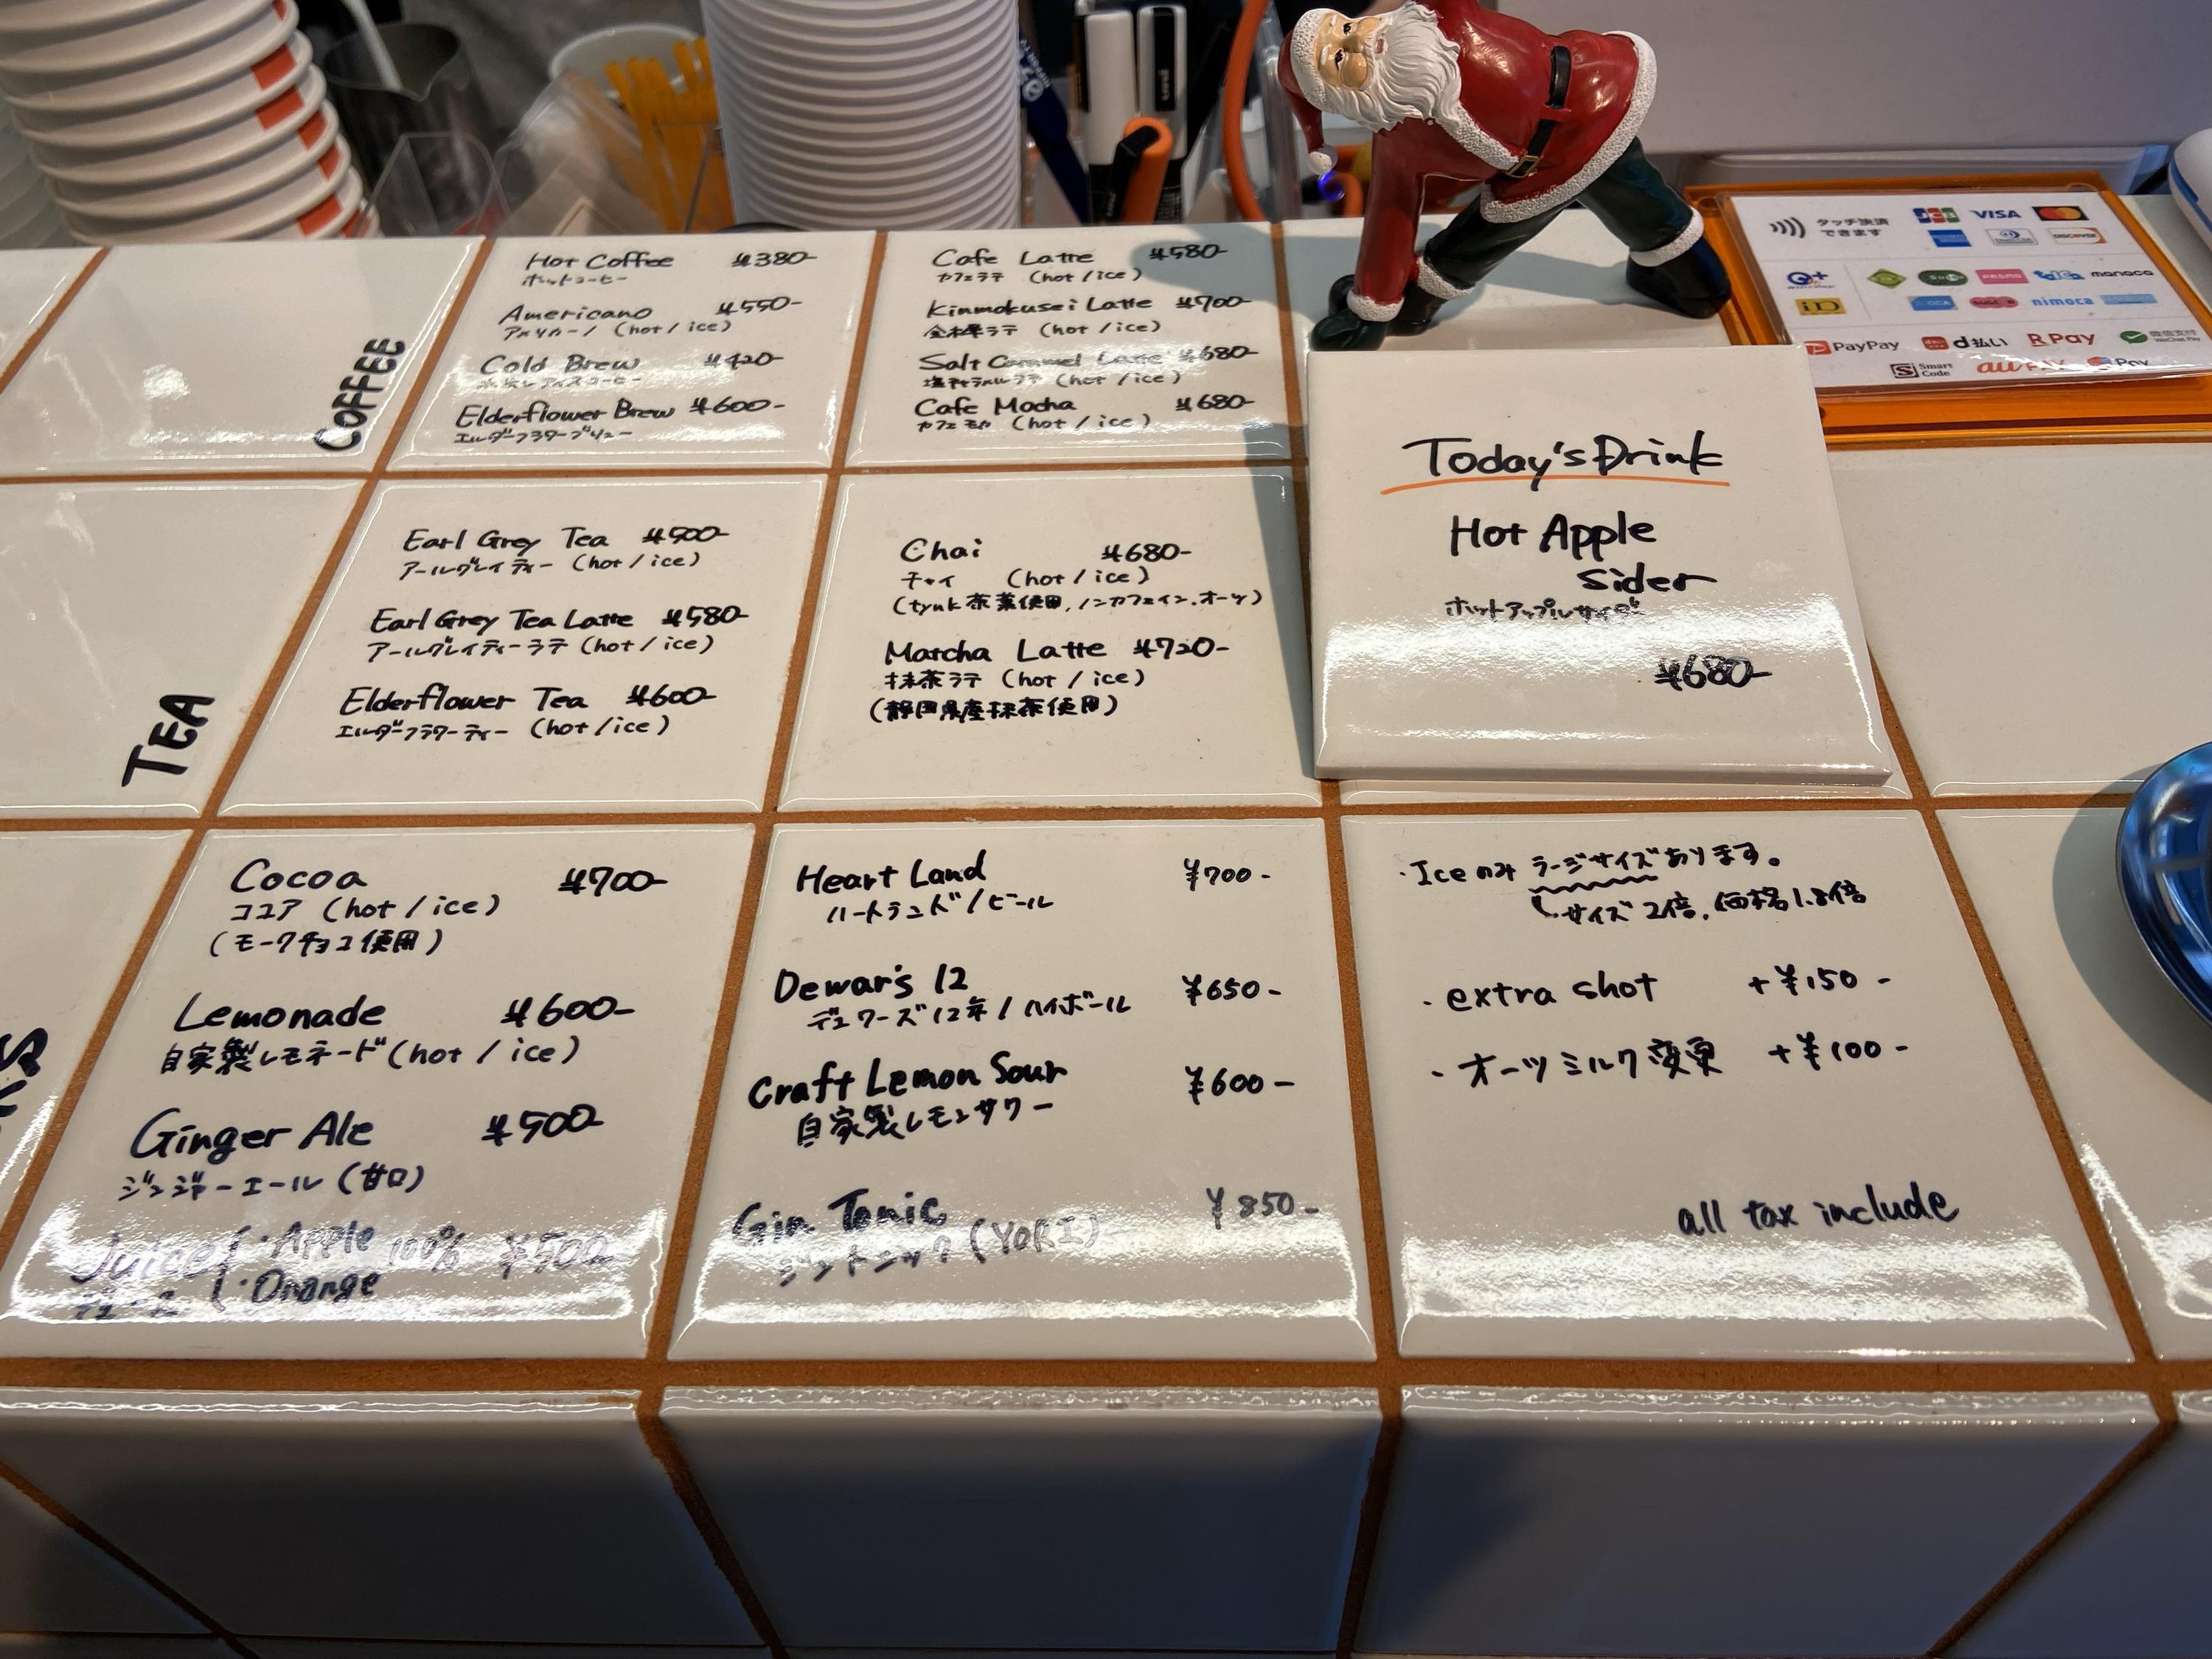 COFFEE
Hot Coffee ¥380-
ホットコーヒー
Americano ¥550-
アメリカーノ (hot / ice)
Cold Brew ¥420-
水出しアイスコーヒー
Elderflower Brew ¥600-
エルダーフラワーブリュー
Cafe Latte ¥580-
カフェラテ (hot / ice)
Kinmokusei Latte ¥700-
金木犀ラテ (hot / ice)
Salt Caramel Latte ¥680-
塩キャラメルラテ (hot / ice)
Cafe Mocha ¥680-
カフェモカ (hot / ice)
タッチ決済
できます
JCB VISA
DISCOVER
iD
PASMO
manaca
nimoca
PayPay
d払い
R Pay
Smart
Code
au PAY
Today's Drink
Hot Apple
Sider
ホットアップルサイダー
¥680-
TEA
Earl Grey Tea ¥500-
アールグレイティー (hot / ice)
Earl Grey Tea Latte ¥580-
アールグレイティーラテ (hot / ice)
Elderflower Tea ¥600-
エルダーフラワーティー (hot / ice)
Chai ¥680-
チャイ (hot / ice)
(tynk 茶葉使用, ノンカフェイン. オーツ)
Matcha Latte ¥720-
抹茶ラテ (hot / ice)
(静岡県産抹茶使用)
Cocoa ¥700-
ココア (hot / ice)
(モークチョコ使用)
Lemonade ¥600-
自家製レモネード (hot / ice)
Ginger Ale ¥500-
ジンジャーエール (甘口)
Juice { ・Apple 100% ¥500-
ジュース ・Orange
Heart Land ¥700-
ハートランド / ビール
Dewar's 12 ¥650-
デュワーズ 12年 / ハイボール
Craft Lemon Sour ¥600-
自家製レモンサワー
Gin Tonic ¥850-
ジントニック (YORI)
・Ice のみ ラージサイズあります。
サイズ 2倍, 価格1.8倍
・extra shot +¥150-
・オーツミルク変更 +¥100-
all tax include